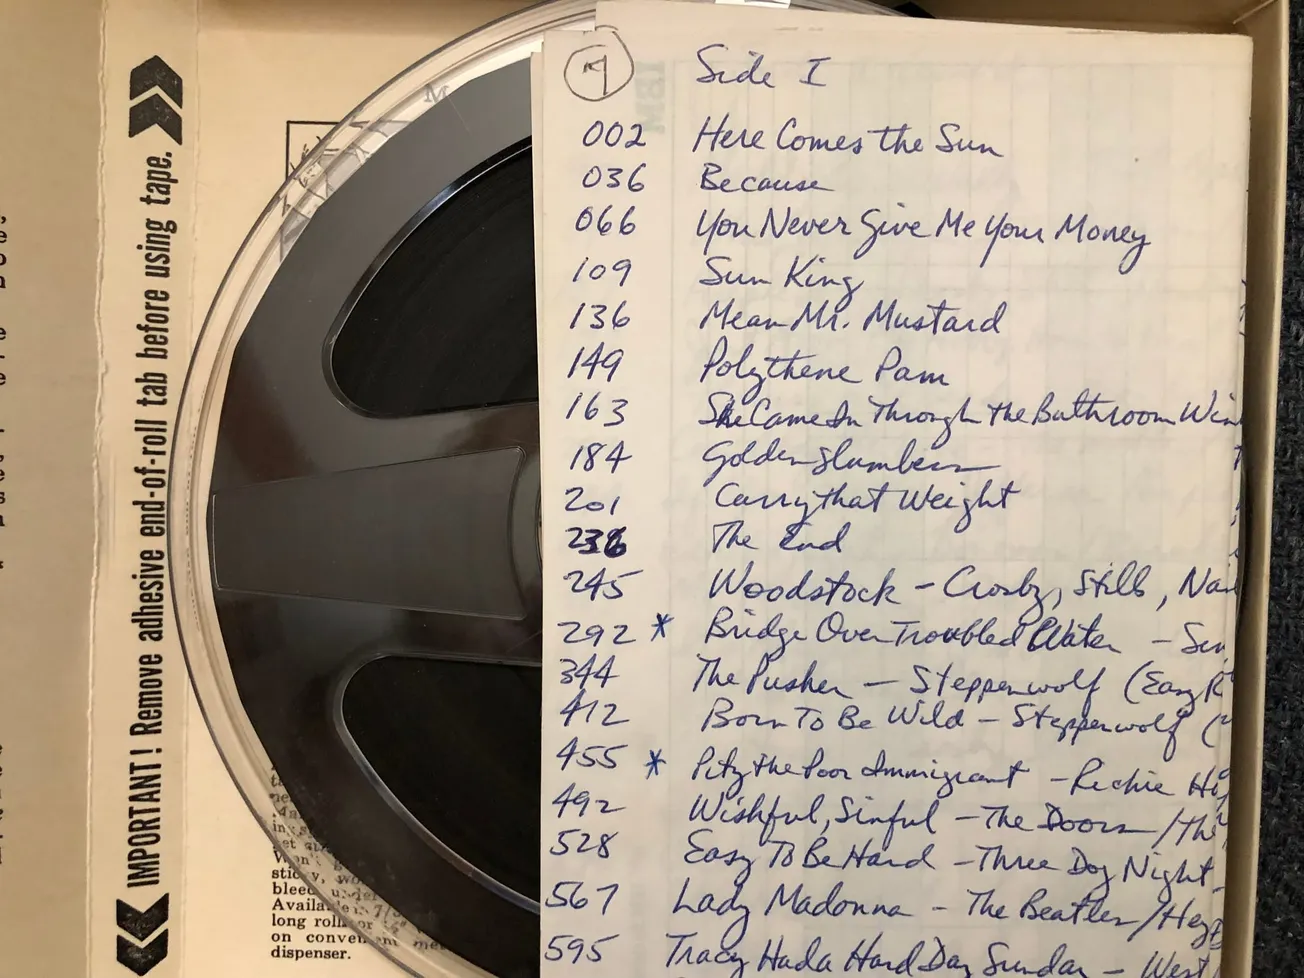 IMPORTANT! Remove adhesive end-of-roll tab before using tape.
M
Side I
002 Here Comes the Sun
036 Because
066 You Never Give Me Your Money
109 Sun King
136 Mean Mr. Mustard
149 Polythene Pam
163 She Came In Through the Bathroom Win
184 Golden Slumbers
201 Carry that Weight
236 The End
245 Woodstock - Crosby, Stills, Na
292 * Bridge Over Troubled Water - Sim
344 The Pusher - Steppenwolf (Easy R
412 Born To Be Wild - Steppenwolf (
455 * Pity the Poor Immigrant - Richie Ha
492 Wishful, Sinful - The Doors / The
528 Easy To Be Hard - Three Dog Night -
567 Lady Madonna - The Beatles / Hey
595 Tracy Had a Hard Day Sunday - West
IBM
sticky,
Available
long roll
on convenient
dispenser.